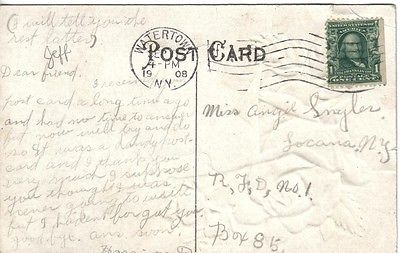 I will tell you the
rest latter
Jeff
Dear friend,
I recen
post card a long time ago
and had no time to answer
it now will try and do
so It was a dandy post
card and I thank you
very much I suppose
you thought I was
never going to write
but I havent forgot you
good bye. ans soon
WATERTOWN
4-PM
1908
N.Y.
POST CARD
Miss Angie
N.Y.
R, F, D, No. 1
Box 85.